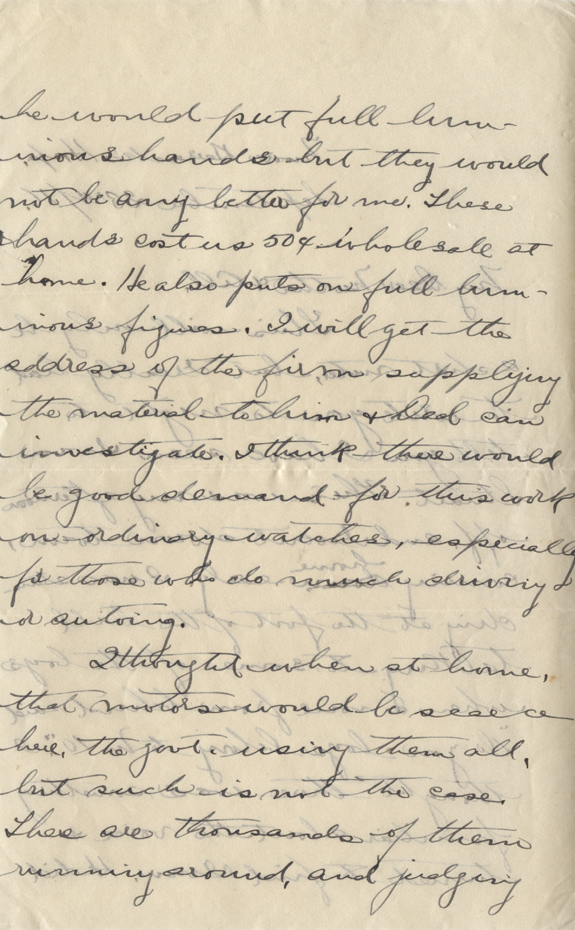 he would put full lum-
inious hands but they would
not be any better for me. These
hands cost us 50¢ wholesale at
home. He also puts on full lum-
inous figures. I will get the
address of the firm supplying
the material to him & Dad can
investigate. I think there would
be good demand for this work
on ordinary watches, especially
for those who do much driving
or autoing.
I thought when at home,
that motors would be scarce
here, the govt. using them all,
but such is not the case.
There are thousands of them
running around, and judging